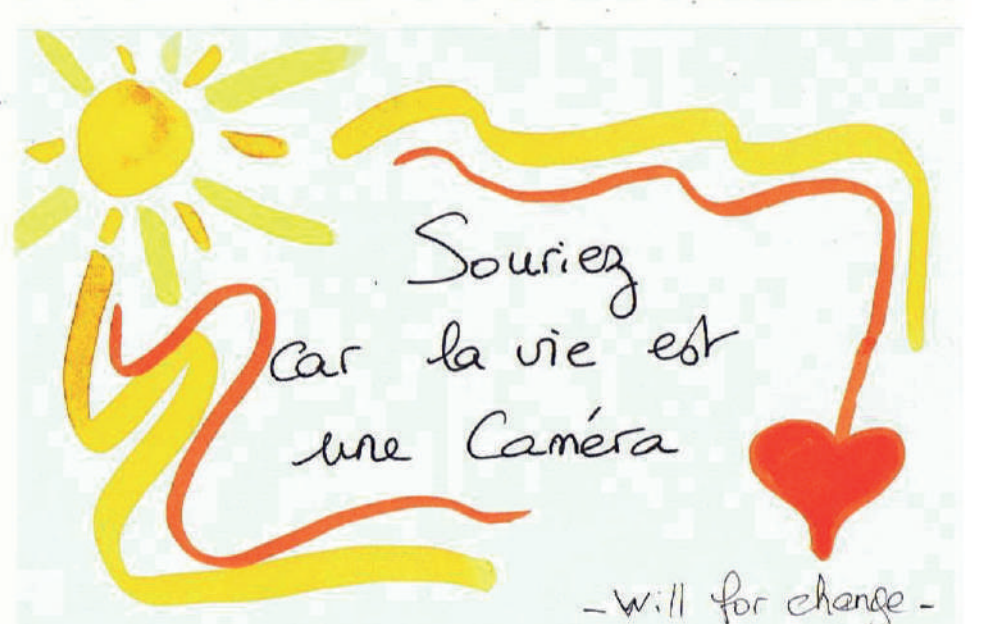 Souriez
car la vie est
une Caméra
- Will for change -